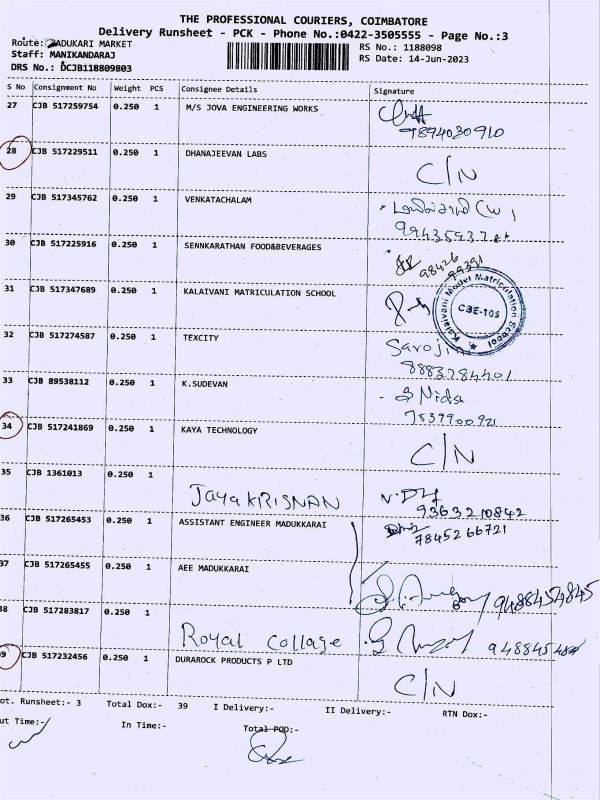 THE PROFESSIONAL COURIERS, COIMBATORE
Delivery Runsheet - PCK - Phone No.:0422-3505555 - Page No.:3
Route: ADUKARI MARKET
RS No.: 1188098
Staff: MANIKANDARAJ
RS Date: 14-Jun-2023
DRS No.: DCJB118809803
S No Consignment No Weight PCS Consignee Details Signature
27 CJB 517259754 0.250 1 M/S JOVA ENGINEERING WORKS
9894030910
28 CJB 517229511 0.250 1 DHANAJEEVAN LABS
C/N
29 CJB 517345762 0.250 1 VENKATACHALAM
30 CJB 517225916 0.250 1 SENNKARATHAN FOOD&BEVERAGES
98426 99391
31 CJB 517347689 0.250 1 KALAIVANI MATRICULATION SCHOOL
Kalaivani Model Matriculation School
CBE-105
32 CJB 517274587 0.250 1 TEXCITY
Sarojini
8883784401
33 CJB 89538112 0.250 1 K.SUDEVAN
7539900921
34 CJB 517241869 0.250 1 KAYA TECHNOLOGY
C/N
35 CJB 1361013 0.250 1
Jaya KRISNAN
9363210842
36 CJB 517265453 0.250 1 ASSISTANT ENGINEER MADUKKARAI
7845266721
37 CJB 517265455 0.250 1 AEE MADUKKARAI
9488454845
38 CJB 517283817 0.250 1
Royal Collage
39 CJB 517232456 0.250 1 DURAROCK PRODUCTS P LTD
C/N
ot. Runsheet:- 3 Total Dox:- 39 I Delivery:- II Delivery:- RTN Dox:-
ut Time:- In Time:- Total POD:-